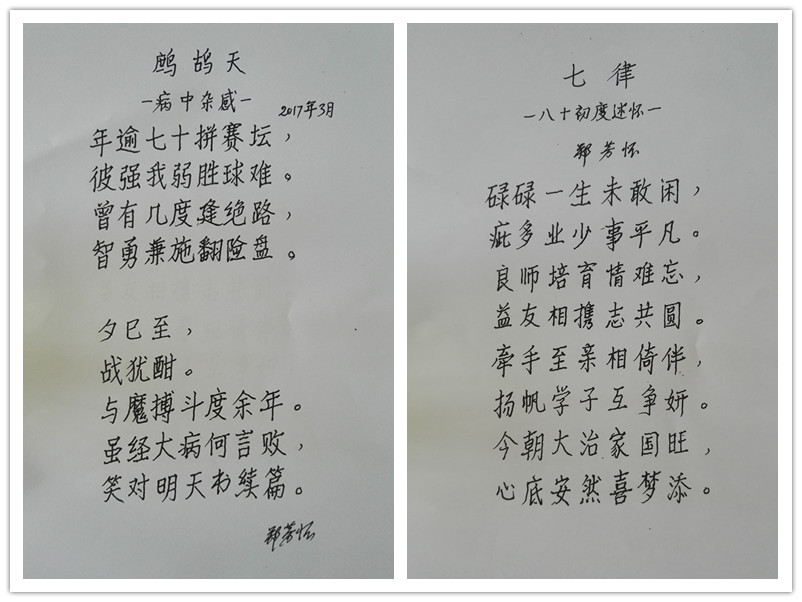 鹧鸪天
—病中杂感—
2017年3月
年逾七十拼赛坛，
彼强我弱胜球难。
曾有几度逢绝路，
智勇兼施翻险盘。
夕已至，
战犹酣。
与魔搏斗度余年。
虽经大病何言败，
笑对明天书续篇。
郑芳怀
七律
—八十初度述怀—
郑芳怀
碌碌一生未敢闲，
疵多业少事平凡。
良师培育情难忘，
益友相携志共圆。
牵手至亲相倚伴，
扬帆学子互争妍。
今朝大治家国旺，
心底安然喜梦添。